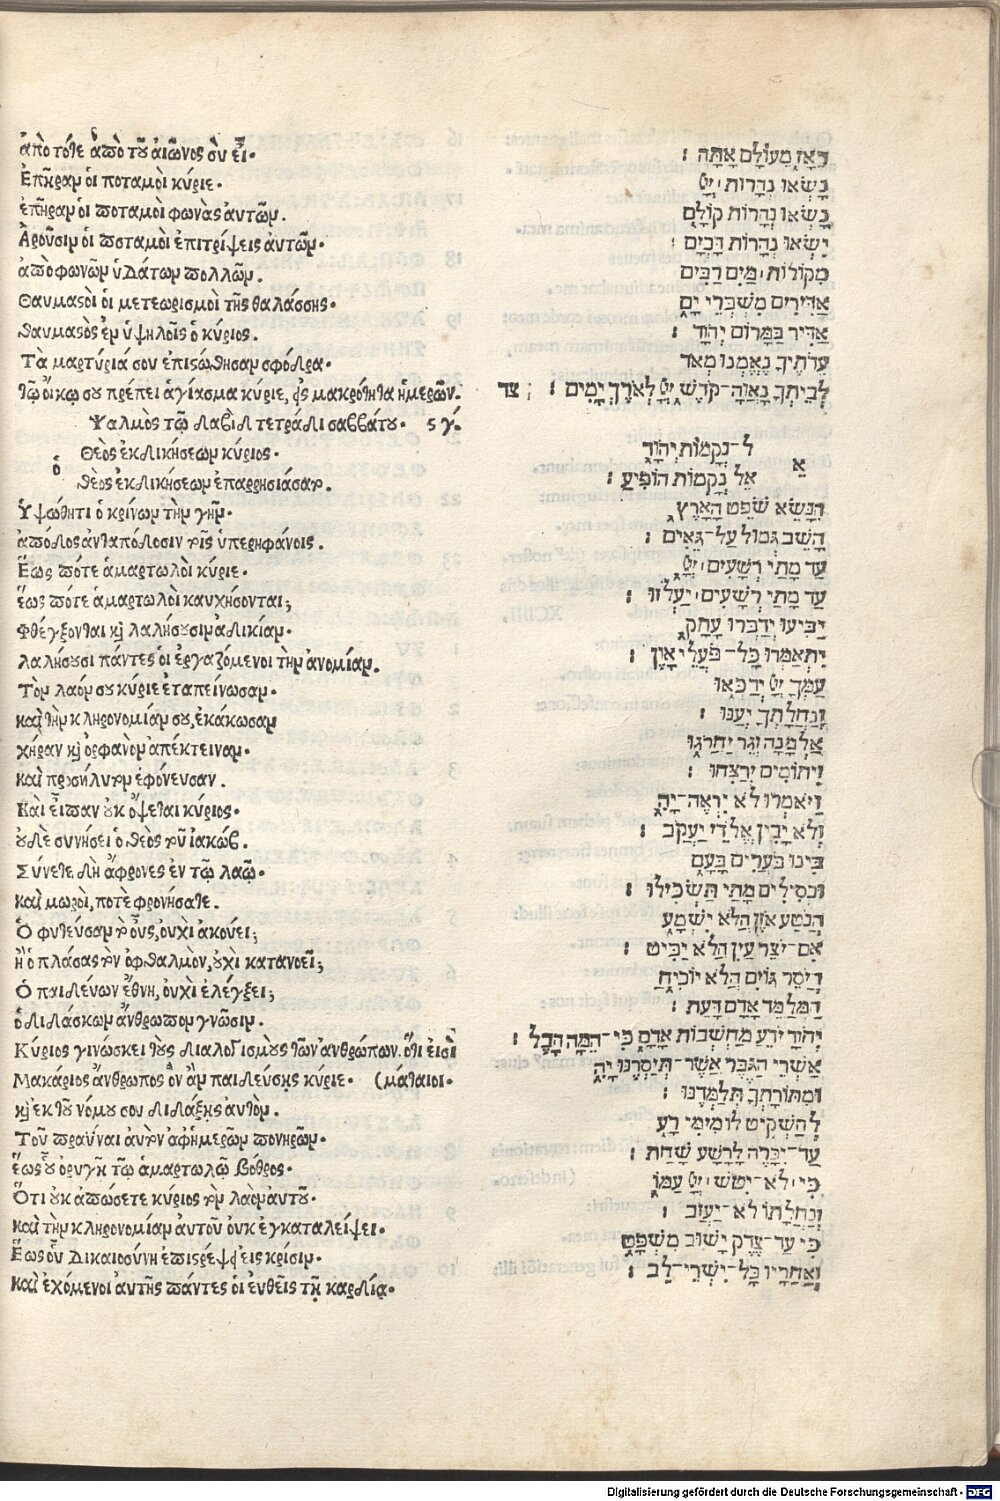 ἀπὸ τότε ἀπὸ τοῦ αἰῶνος σὺ εἶ.
Ἐπῆραν οἱ ποταμοὶ κύριε.
ἐπῆραν οἱ ποταμοὶ φωνὰς αὐτῶν.
Ἀροῦσιν οἱ ποταμοὶ ἐπιτρίψεις αὐτῶν.
ἀπὸ φωνῶν ὑδάτων πολλῶν.
Θαυμαστοὶ οἱ μετεωρισμοὶ τῆς θαλάσσης.
θαυμαστὸς ἐν ὑψηλοῖς ὁ κύριος.
Τὰ μαρτύριά σου ἐπιστώθησαν σφόδρα.
τῷ οἴκῳ σου πρέπει ἁγίασμα κύριε, εἰς μακρότητα ἡμερῶν.
Ψαλμὸς τῷ δαβὶδ τετράδι σαββάτου. ϟγ.
Θεὸς ἐκδικήσεων κύριος.
ὁ
θεὸς ἐκδικήσεων ἐπαρρησιάσατο.
Ὑψώθητι ὁ κρίνων τὴν γῆν.
ἀπόδος ἀνταπόδοσιν τοῖς ὑπερηφάνοις.
Ἕως πότε ἁμαρτωλοὶ κύριε.
ἕως πότε ἁμαρτωλοὶ καυχήσονται;
Φθέγξονται καὶ λαλήσουσιν ἀδικίαν.
λαλήσουσι πάντες οἱ ἐργαζόμενοι τὴν ἀνομίαν.
Τὸν λαόν σου κύριε ἐταπείνωσαν.
καὶ τὴν κληρονομίαν σου, ἐκάκωσαν
χήραν καὶ ὀρφανὸν ἀπέκτειναν.
καὶ προσήλυτον ἐφόνευσαν.
Καὶ εἶπαν οὐκ ὄψεται κύριος.
οὐδὲ συνήσει ὁ θεὸς τοῦ ἰακώβ.
Σύνετε δὴ ἄφρονες ἐν τῷ λαῷ.
καὶ μωροὶ, ποτὲ φρονήσατε.
Ὁ φυτεύσας τὸ οὖς, οὐχὶ ἀκούει;
ἢ ὁ πλάσας τὸν ὀφθαλμὸν, οὐχὶ κατανοεῖ;
Ὁ παιδεύων ἔθνη, οὐχὶ ἐλέγξει;
ὁ διδάσκων ἄνθρωπον γνῶσιν.
Κύριος γινώσκει τοὺς διαλογισμοὺς τῶν ἀνθρώπων. ὅτι εἰσὶ
Μακάριος ἄνθρωπος ὃν ἂν παιδεύσῃς κύριε. (μάταιοι.
καὶ ἐκ τοῦ νόμου σου διδάξῃς αὐτόν.
Τοῦ πραῧναι αὐτὸν ἀφ' ἡμερῶν πονηρῶν.
ἕως οὗ ὀρυγῇ τῷ ἁμαρτωλῷ βόθρος.
Ὅτι οὐκ ἀπώσεται κύριος τὸν λαὸν αὑτοῦ.
καὶ τὴν κληρονομίαν αὑτοῦ οὐκ ἐγκαταλείψει.
Ἕως οὗ δικαιοσύνη ἐπιστρέψῃ εἰς κρίσιν.
καὶ ἐχόμενοι αὐτῆς πάντες οἱ εὐθεῖς τῇ καρδίᾳ.
מֵאָז מֵעוֹלָם אָתָּה :
נָשְׂאוּ נְהָרוֹת יְיָ
נָשְׂאוּ נְהָרוֹת קוֹלָם
יִשְׂאוּ נְהָרוֹת דָּכְיָם :
מִקּוֹלוֹת מַיִם רַבִּים
אַדִּירִים מִשְׁבְּרֵי יָם
אַדִּיר בַּמָּרוֹם יְהוָֹד :
עֵדֹתֶיךָ נֶאֶמְנוּ מְאֹד
לְבֵיתְךָ נַאֲוָה־קֹדֶשׁ יְיָ לְאֹרֶךְ יָמִים : ; צד
ל־נְקָמוֹת יְהוָֹד
א
אֵל נְקָמוֹת הוֹפִיעַ :
הִנָּשֵׂא שֹׁפֵט הָאָרֶץ
הָשֵׁב גְּמוּל עַל־גֵּאִים :
עַד מָתַי רְשָׁעִים יְיָ
עַד מָתַי רְשָׁעִים יַעֲלֹזוּ :
יַבִּיעוּ יְדַבְּרוּ עָתָק
יִתְאַמְּרוּ כָּל־פֹּעֲלֵי אָוֶן :
עַמְּךָ יְיָ יְדַכְּאוּ
וְנַחֲלָתְךָ יְעַנּוּ :
אַלְמָנָה וְגֵר יַהֲרֹגוּ
וִיתוֹמִים יְרַצֵּחוּ :
וַיֹּאמְרוּ לֹא יִרְאֶה־יָּהּ
וְלֹא יָבִין אֱלֹדֵי יַעֲקֹב :
בִּינוּ בֹּעֲרִים בָּעָם
וּכְסִילִים מָתַי תַּשְׂכִּילוּ :
הֲנֹטַע אֹזֶן הֲלֹא יִשְׁמָע
אִם־יֹצֵר עַיִן הֲלֹא יַבִּיט :
הֲיֹסֵר גּוֹיִם הֲלֹא יוֹכִיחַ
הַמְלַמֵּד אָדָם דָּעַת :
יְהוָֹד יֹדֵעַ מַחְשְׁבוֹת אָדָם כִּי־הֵמָּה הָבֶל :
אַשְׁרֵי הַגֶּבֶר אֲשֶׁר־תְּיַסְּרֶנּוּ יָּהּ
וּמִתּוֹרָתְךָ תְלַמְּדֶנּוּ :
לְהַשְׁקִיט לוֹ מִימֵי רָע
עַד־יִכָּרֶה לָרָשָׁע שָׁחַת :
כִּי לֹא־יִטֹּשׁ יְיָ עַמּוֹ
וְנַחֲלָתוֹ לֹא־יַעֲזֹב :
כִּי עַד־צֶדֶק יָשׁוּב מִשְׁפָּט
וְאַחֲרָיו כָּל־יִשְׁרֵי־לֵב :
Digitalisierung gefördert durch die Deutsche Forschungsgemeinschaft - DFG